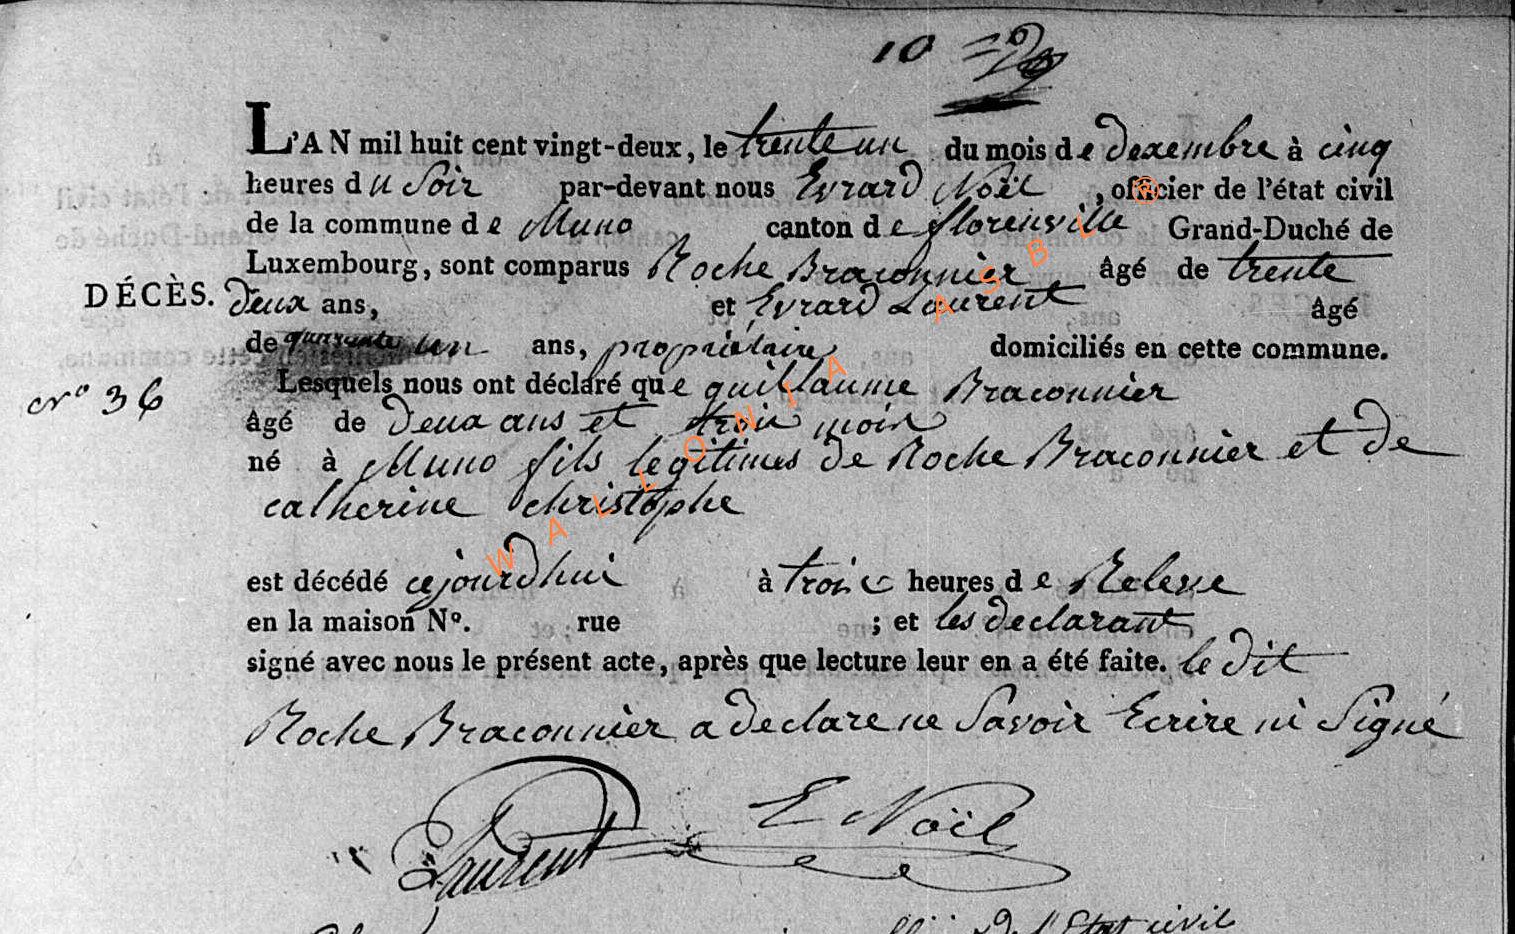 10
L'AN mil huit cent vingt-deux, le trente un du mois de dexembre à cinq
heures du Soir par-devant nous Evrard Noël, officier de l'état civil
de la commune de Muno canton de florenville Grand-Duché de
Luxembourg, sont comparus Roche Braconnier âgé de trente
DÉCÈS. deux ans, et Evrard Laurent âgé
de quarante un ans, propriétaire domiciliés en cette commune.
Lesquels nous ont déclaré que guillaume Braconnier
nro 36
âgé de deux ans et trois mois
né à Muno fils legitimes de Roche Braconnier et de
catherine christophe
est décédé cejourdhui à trois heures de Relevé
en la maison No. rue ; et les declarant
signé avec nous le présent acte, après que lecture leur en a été faite. le dit
Roche Braconnier a declare ne Savoir Ecrire ni Signé
Laurent E Noël
de l'Etat civil
WALLONIA ASBL ®